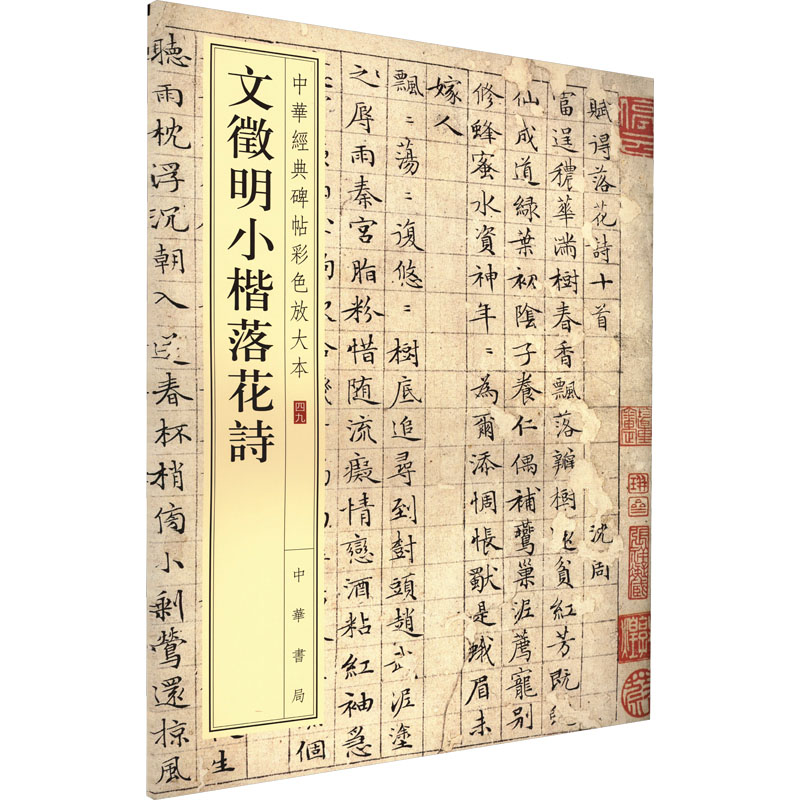 賦得落花詩十首 沈周
富逞穠華滿樹春香飄落瓣樹 貧紅芳既
仙成道綠葉初陰子養仁偶補鶯巢泥薦寵別
修蜂蜜水資神年〻為爾添惆悵獃是蛾眉未
嫁人
飄〻蕩〻復悠〻樹底追尋到樹頭趙武泥塗
之辱雨秦宮脂粉惜随流癡情戀酒粘紅袖急
個
中華經典碑帖彩色放大本 四九
中華書局
文徵明小楷落花詩
生
聽雨枕浮沉朝入 春杯梢傍小剩鶯還掠風